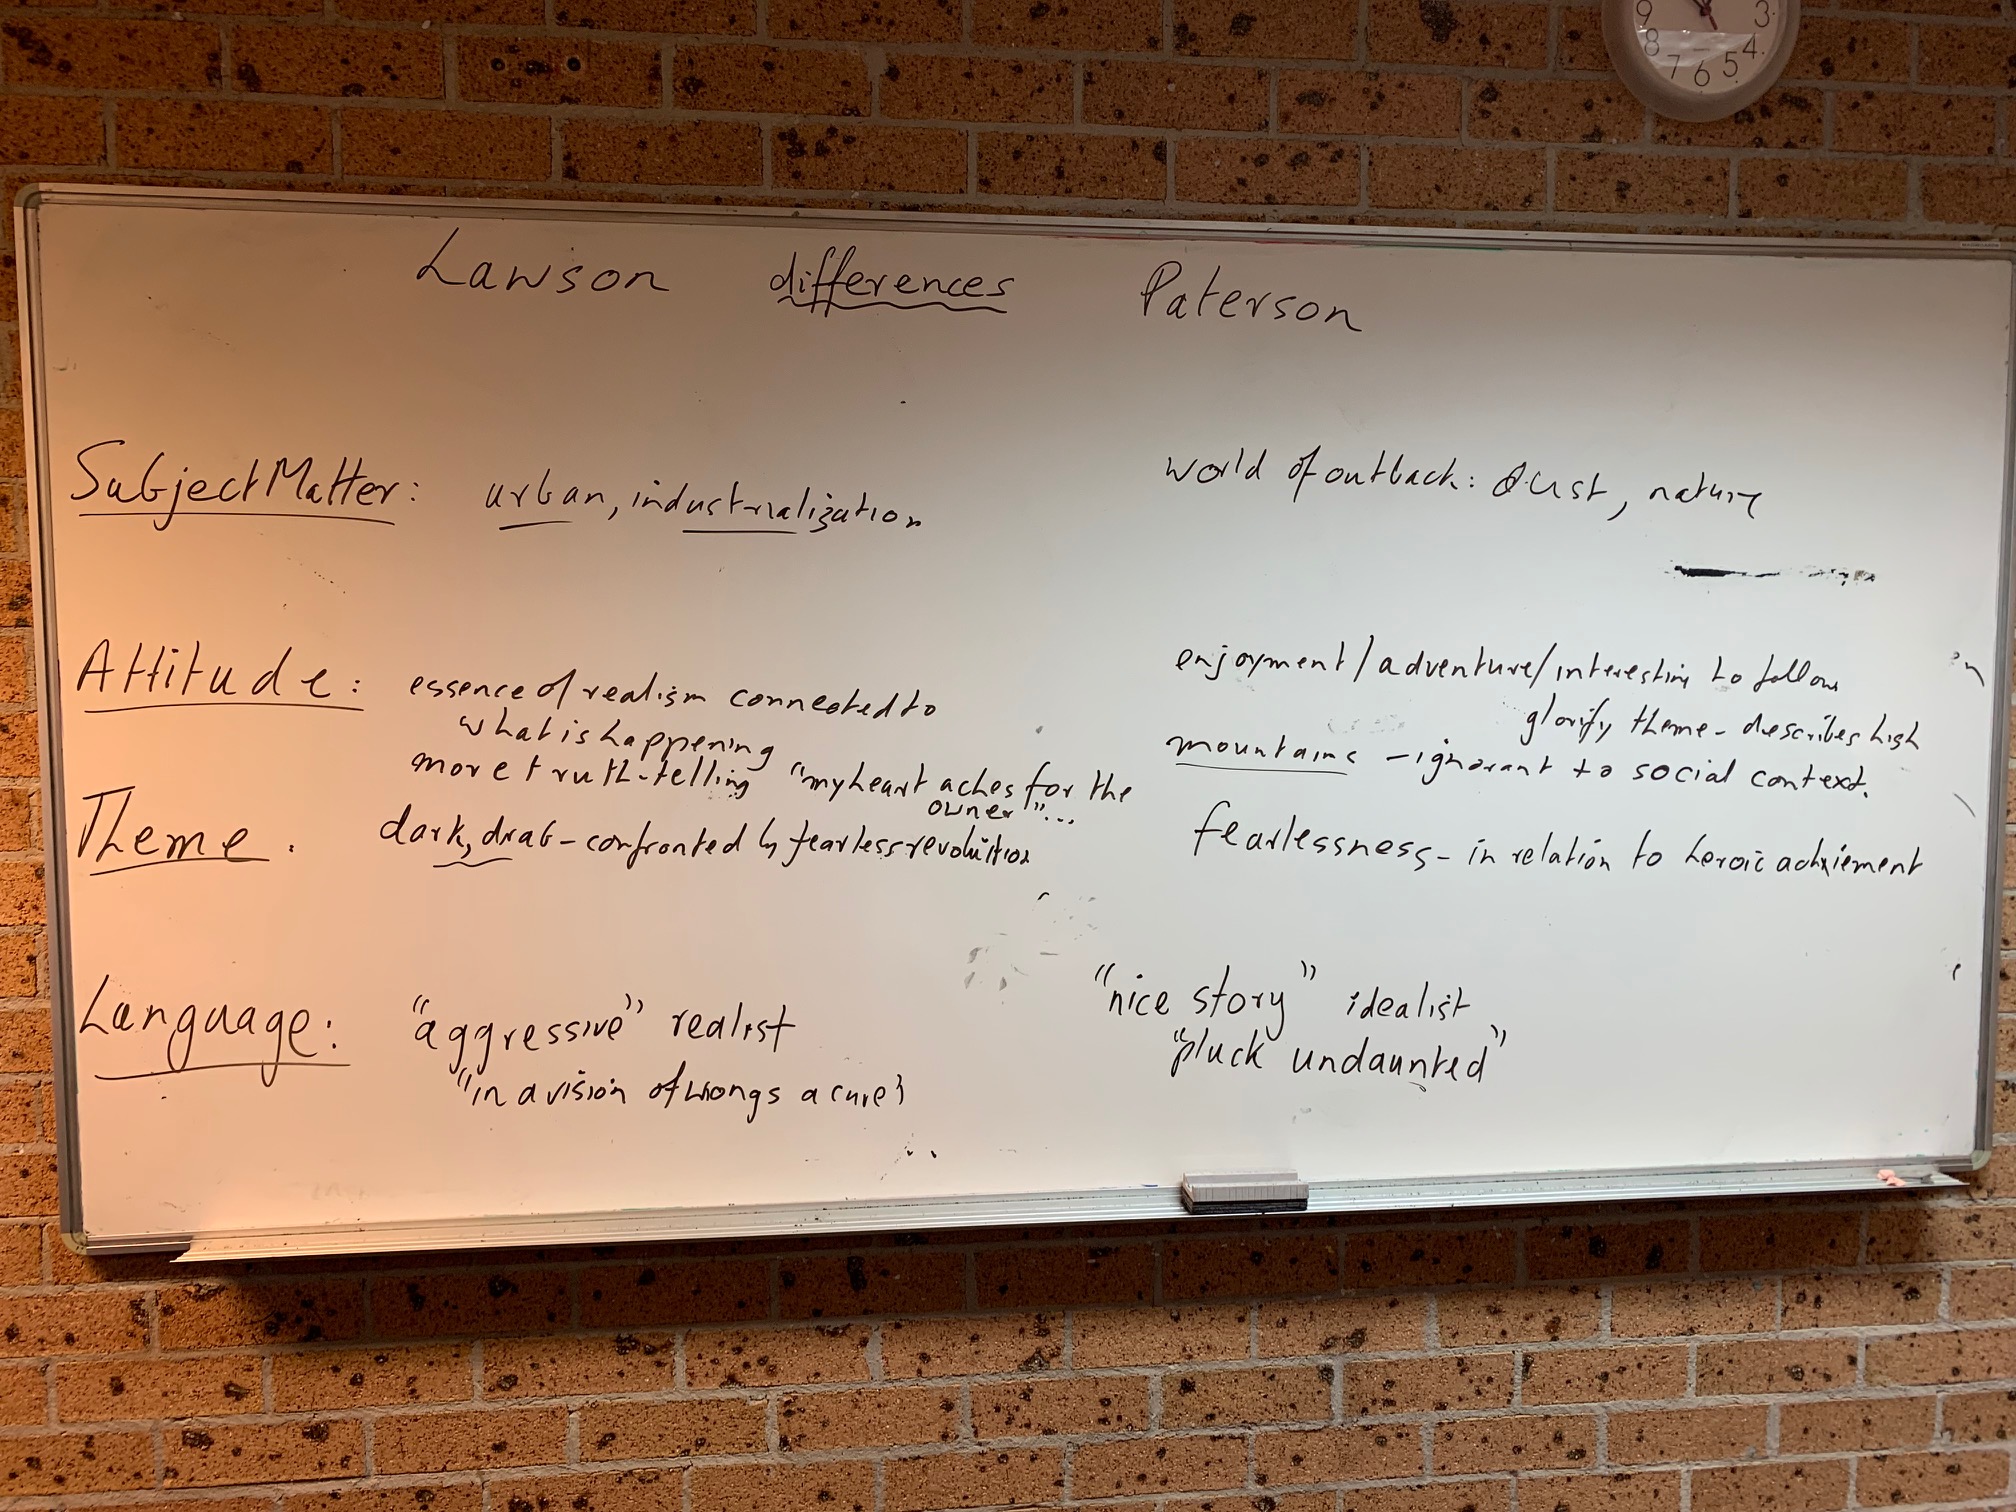 9 3
8 4
7 6 5
Lawson differences Paterson
Subject Matter: urban, industrialization
world of outback: dust, nature
Attitude: essence of realism connected to
what is happening
more truth-telling "my heart aches for the
owner"...
enjoyment/adventure/interesting to follow
glorify theme - describes high
mountains - ignorant to social context.
Theme. dark, drab - confronted by fearless revolution
fearlessness - in relation to heroic achiement
Language: "aggressive" realist
"in a vision of wrongs a cure"
"nice story" idealist
"pluck undaunted"